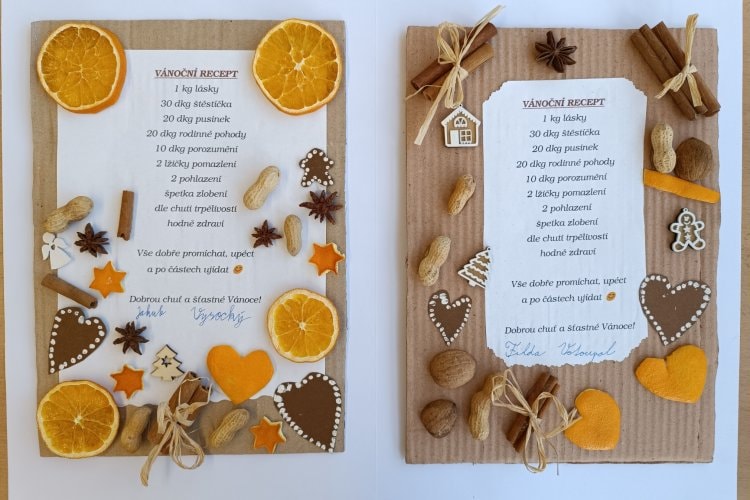 VÁNOČNÍ RECEPT
1 kg lásky
30 dkg štěstíčka
20 dkg pusinek
20 dkg rodinné pohody
10 dkg porozumění
2 lžičky pomazlení
2 pohlazení
špetka zlobení
dle chuti trpělivosti
hodně zdraví
Vše dobře promíchat, upéct
a po částech ujídat
Dobrou chuť a šťastné Vánoce!
Jakub Vysocký
VÁNOČNÍ RECEPT
1 kg lásky
30 dkg štěstíčka
20 dkg pusinek
20 dkg rodinné pohody
10 dkg porozumění
2 lžičky pomazlení
2 pohlazení
špetka zlobení
dle chuti trpělivosti
hodně zdraví
Vše dobře promíchat, upéct
a po částech ujídat
Dobrou chuť a šťastné Vánoce!